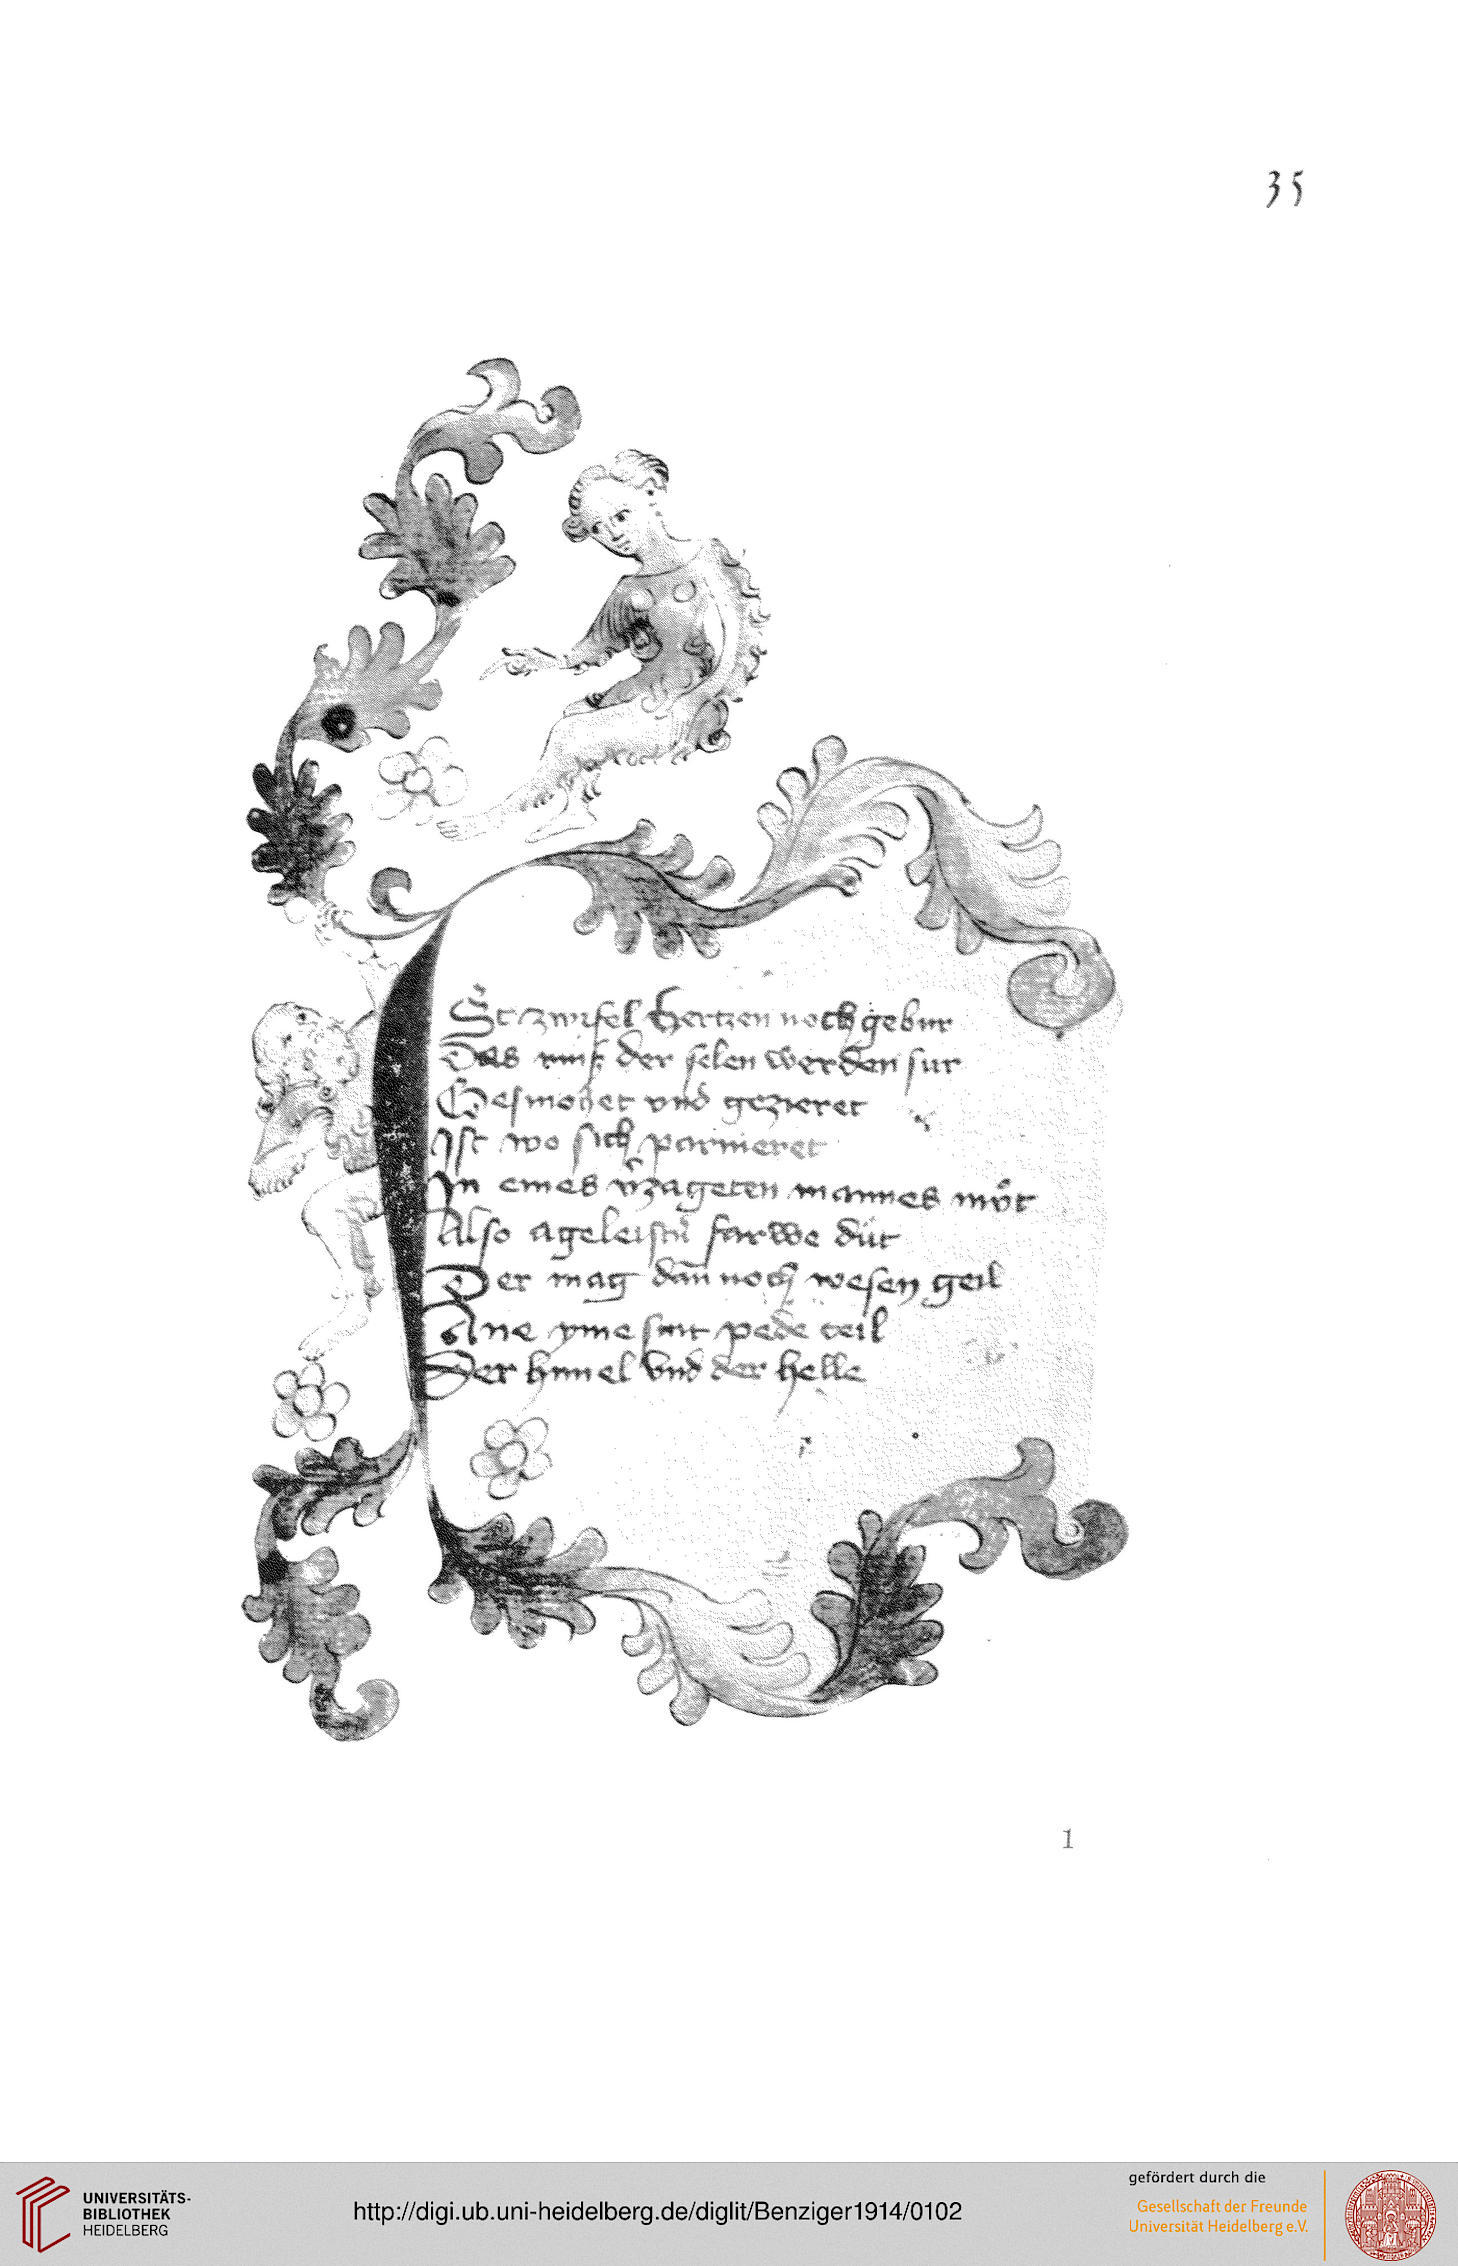 35
St zwifel hertzen noch gebur
Das mus der selen werden sur
Gesmohet vnd gezieret
Ist wo sich parrieret
In eines v̓zageten mannes můt
Also ageleistn̄ farwe düt
Der mag dan̄ noch wesen geil
Ane yme sint pede teil
Der himel vnd der helle
1
UNIVERSITÄTS-
BIBLIOTHEK
HEIDELBERG
http://digi.ub.uni-heidelberg.de/diglit/Benziger1914/0102
gefördert durch die
Gesellschaft der Freunde
Universität Heidelberg e.V.